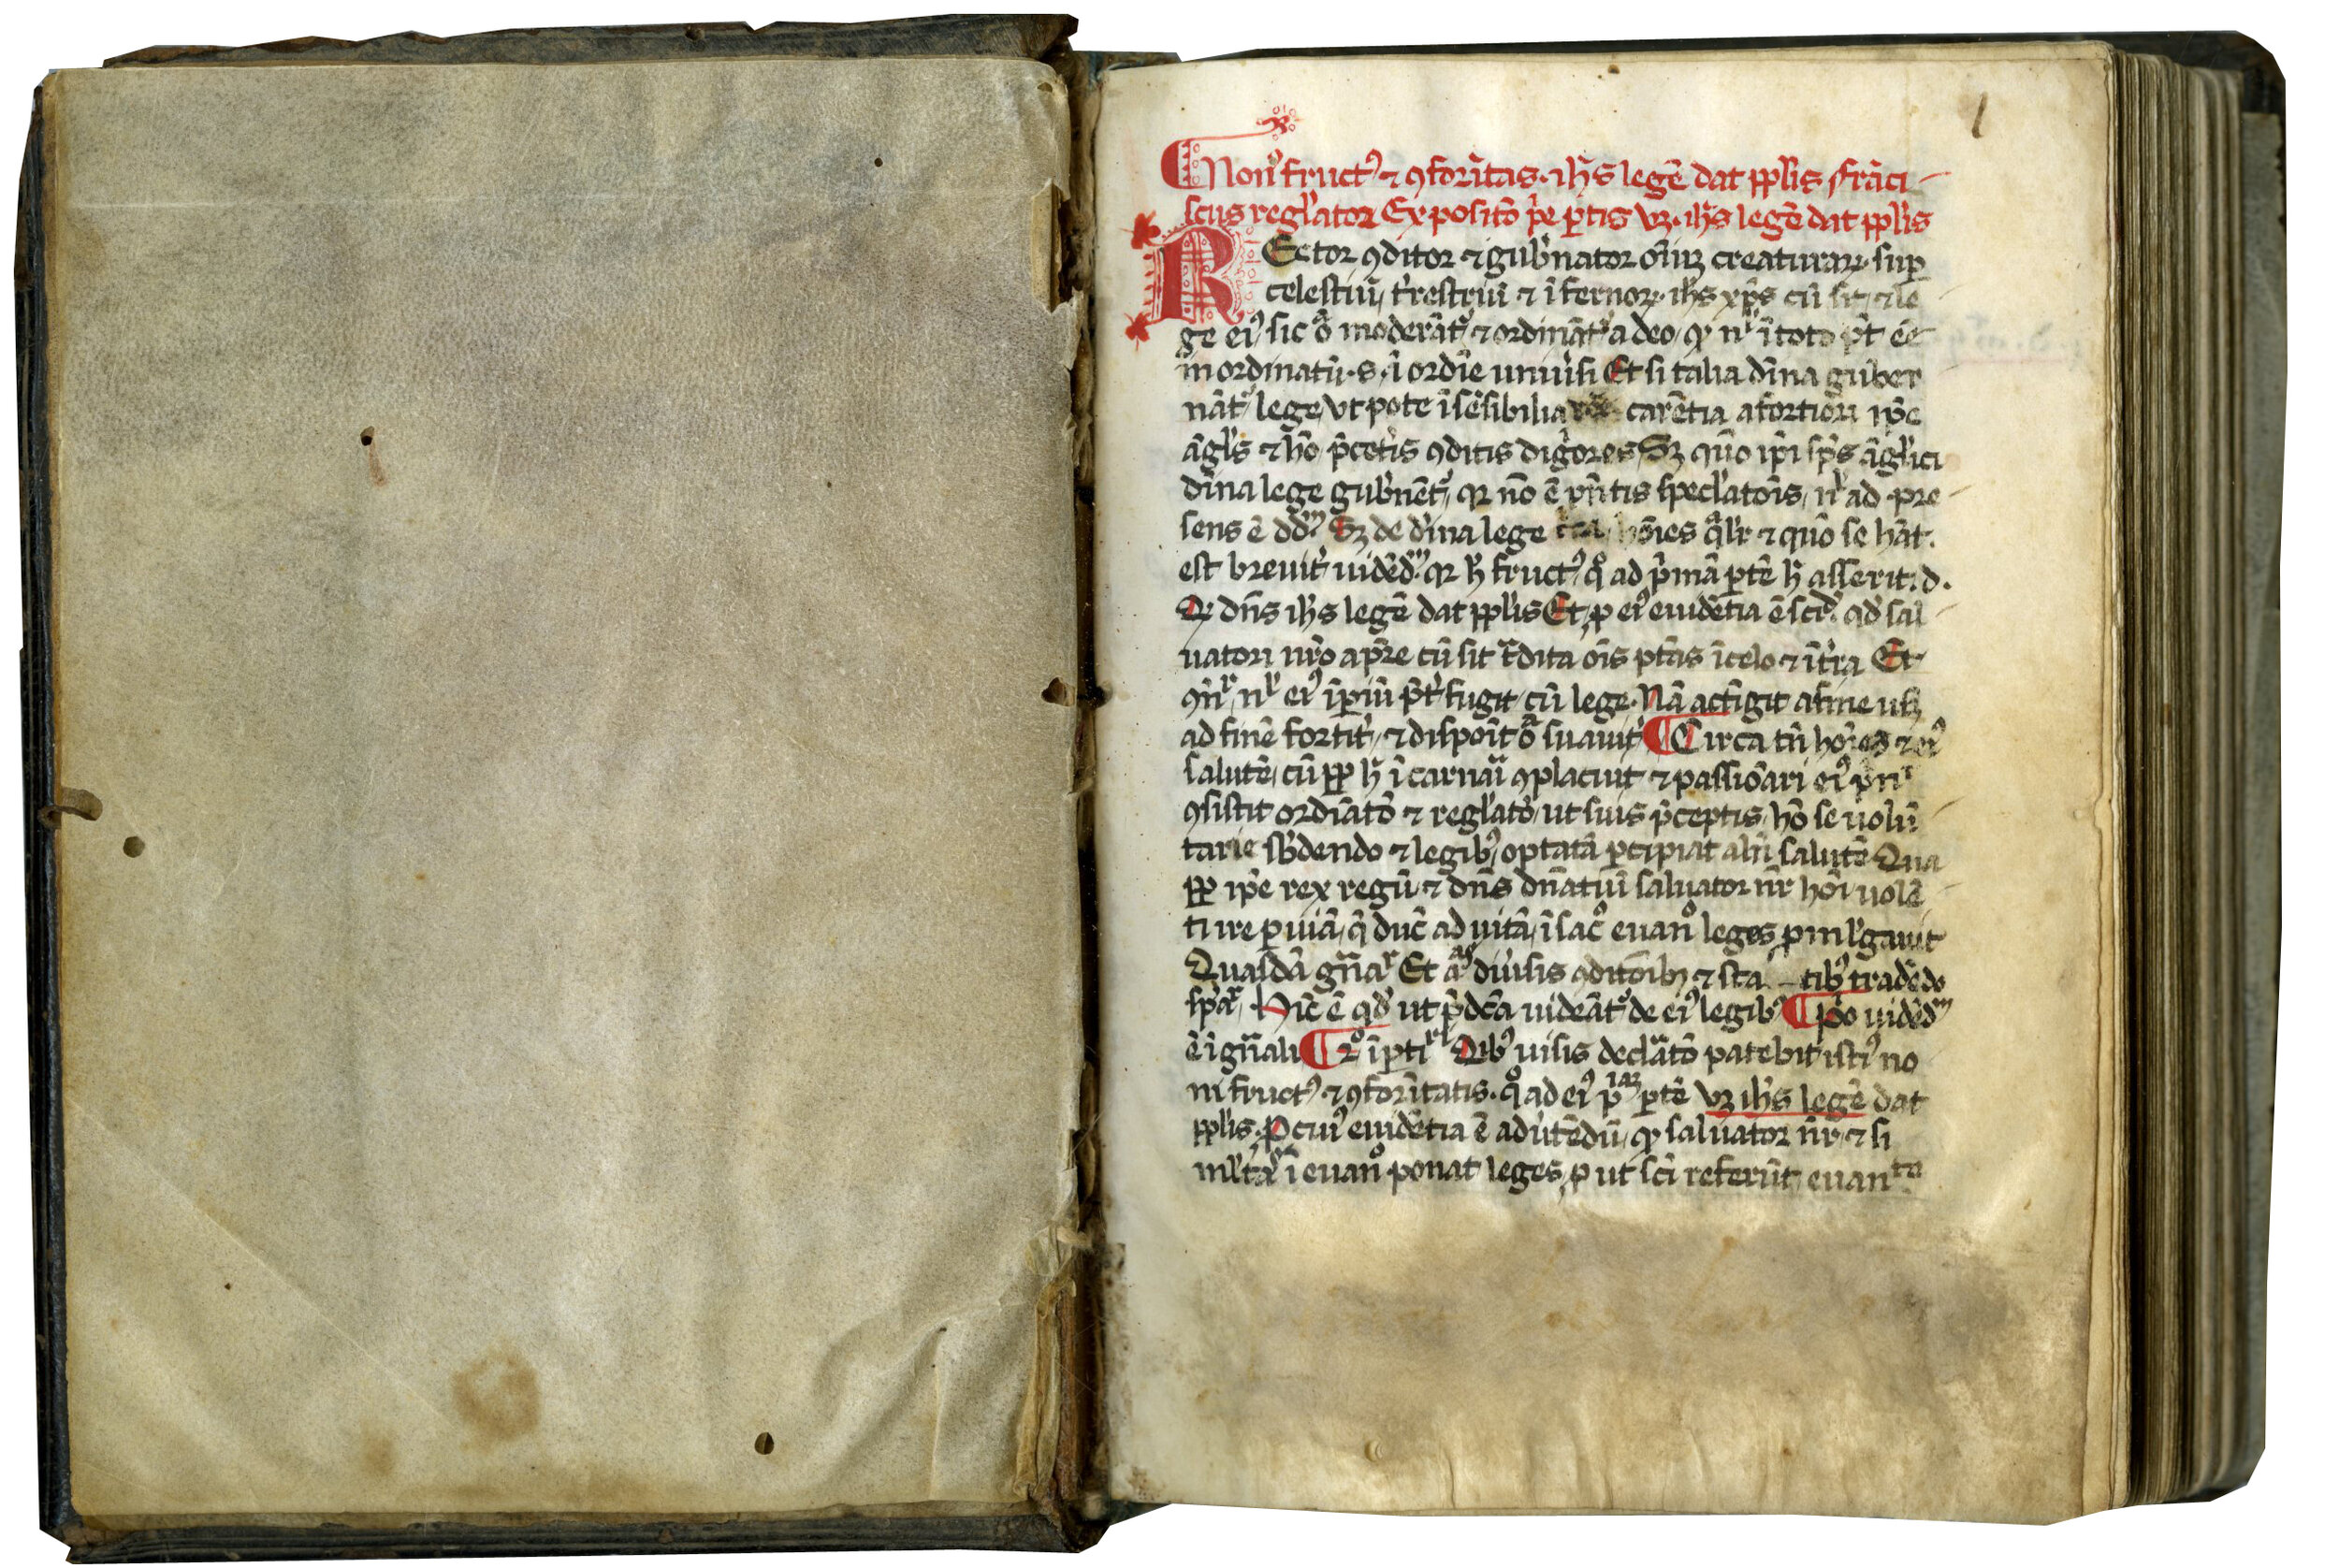 1
Non' fruct⁹ ⁊ ꝯfor̄itas. ih̄s legē dat ppl̄is frāci-
scus regl̄ator Expositō p̄e p̄tis vꝫ. ih̄s legē dat ppl̄is
REctor ꝯditor ⁊ gub̄nator oīuꝫ creaturaꝝ. sup
celestiū, t̄restriū ⁊ īfernoꝝ. ih̄s xp̄s cū sit, ⁊ le
ge ei⁹, sic oa moderāt᷑, ⁊ ordināt᷑ a deo, ꝙ nl̄ ī toto p̄t eē
inordinatū. s. ī ordīe univ̄si Et si talia dīna guber
nāt᷑, lege, vt pote īsēsibilia carētia a fortiori ip̄e
āgl̄s ⁊ hō p̄cet̄is ꝯditis digōres Sꝫ quō ip̄i sp̄s āgl̄ici
dīna lege gub̄nēt᷑, qꝛ nō ē p̄ntis specl̄atōīs, nl̄ ad pre-
sens ē dd̄ᵐ Sꝫ de dīna lege hōīes ql̄r ⁊ quō se hāt.
est breuit̄ uidēdᵐ. qꝛ h̄ fruct⁹, qo ad p̄mā p̄tē h̄ asserit. d.
Q dn̄s ih̄s legē dat ppl̄is Et, ꝓ ei⁹ euidētia ē scīd᷑. qd̄ sal-
uatori nr̄o a p̄re cū sit t̄dita oīs ptās ī celo ⁊ ī t̄ra Et
ꝯn̄r, nl̄ ei⁹ īperiū p̄t᷑ fugit, cū lege. Nā actīgit a fine usꝫ
ad finē fortit̄, ⁊ dispoīt oa suauit̄ Circa tn̄ hōīes ⁊ ei⁹
salutē, cū ꝓp h̄ īcarnari ꝯplacuit ⁊ passionari ei⁹ p̄nr
ꝯsistit ordīatō ⁊ regl̄atō, ut suis p̄ceptis, hō se uolū
tarie sb̄dendo ⁊ legib⁹, optatā p̄cipiat aīn salutē Qua
ꝓp ip̄e rex regū, ⁊ dn̄s dn̄atiū saluator nr̄ hōī uolē-
ti ire p uiā, q̄ duc̄ ad uitā, ī sac̊ euan̊ leges ꝓml̄gauit
Quasdā gn̄ar Et as diūsis ꝯditōībꝫ ⁊ sta tib⁹ tradēdo
sp̄ar, Hīc ē qd̄ ut p̄dc̄a uideāt᷑ de ei⁹ legib⁹ p̊o uidēdᵐ
ē ī gn̄ali 2o ī p̄tirl Qib⁹ uisis declāatō patebit isti⁹ no
ni fruct⁹. ⁊ ꝯfor̄itatis. qo ad ei⁹ piaꝫ p̄tē vꝫ ih̄s legē dat
ppl̄is. P cui⁹ euidētia ē adūtēdū, ꝙ saluator nr̄, ⁊ si
ml̄ta ī euan̊ ponat leges, ꝓ ut sc̄i referūt euanta